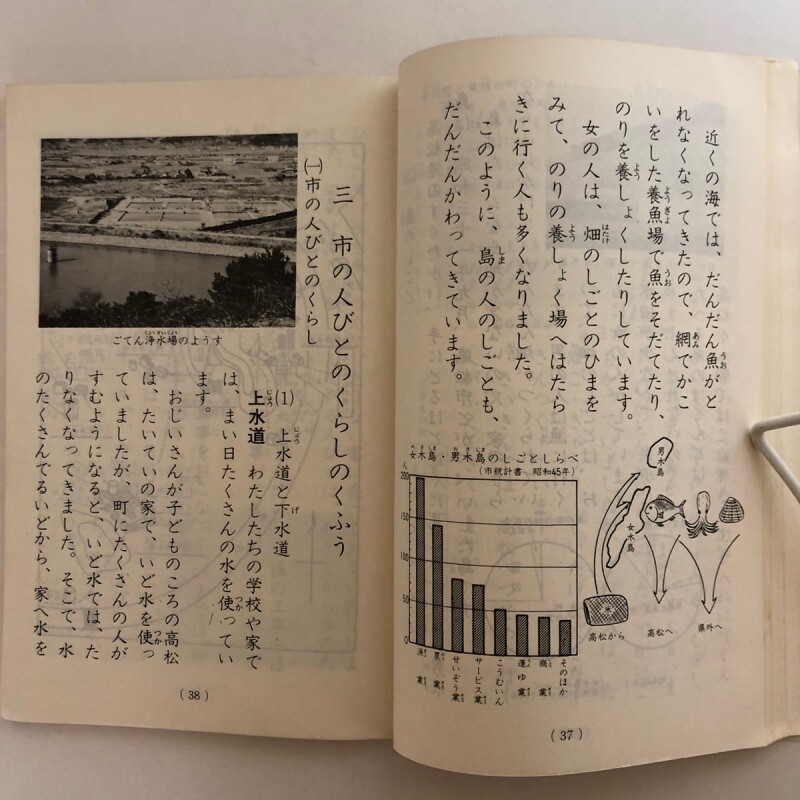 近くの海では、だんだん魚がと
れなくなってきたので、網でかこ
いをした養魚場で魚をそだてたり、
のりを養しょくしたりしています。
女の人は、畑のしごとのひまを
みて、のりの養しょく場へはたら
きに行く人も多くなりました。
このように、島の人のしごとも、
だんだんかわってきています。
女木島・男木島のしごとしらべ
(市統計書 昭和45年)
人
200
150
100
50
0
漁業
農業
せいぞう業
サービス業
こうむいん
運ゆ業
商業
そのほか
男木島
女木島
米
高松から
高松へ
県外へ
(37)
三 市の人びとのくらしのくふう
㈠市の人びとのくらし
ごてん浄水場のようす
(1) 上水道と下水道
上水道 わたしたちの学校や家で
は、まい日たくさんの水を使ってい
ます。
おじいさんが子どものころの高松
は、たいていの家で、いど水を使っ
ていましたが、町にたくさんの人が
すむようになると、いど水では、た
りなくなってきました。そこで、水
のたくさんでるいどから、家へ水を
(38)